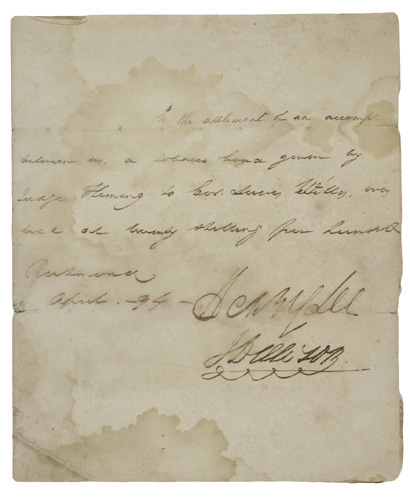 In the settlement of an accompt
between us, a tobacco bond given by
Judge Fleming to Cor. Lewis was
at twenty shilling per hundred
Richmond
April -94- Henry Lee